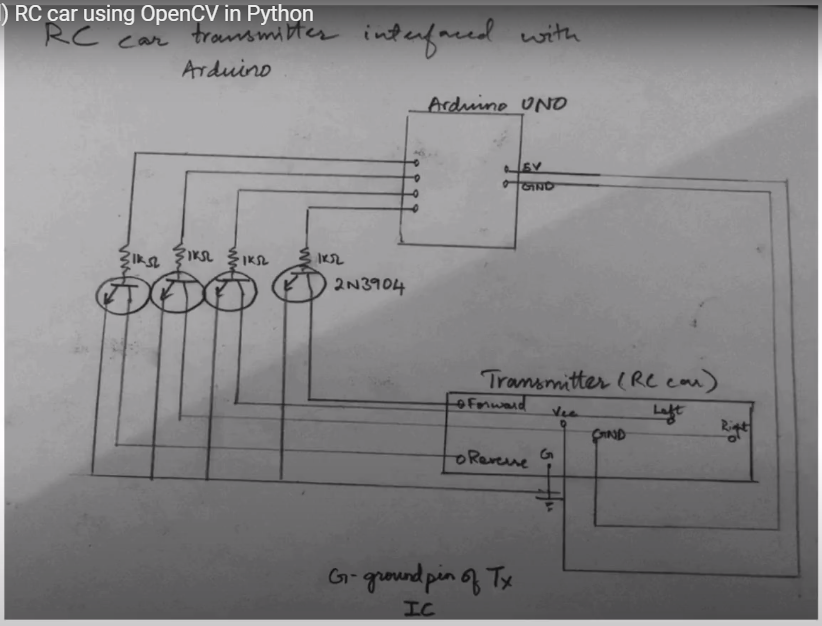 ) RC car using OpenCV in Python
RC car transmitter interfaced with
Arduino
Arduino UNO
5V
GND
1KΩ
1KΩ
1KΩ
1KΩ
2N3904
Transmitter (RC car)
Forward
Vcc
Left
GND
Right
Reverse
G
G-ground pin of Tx
IC